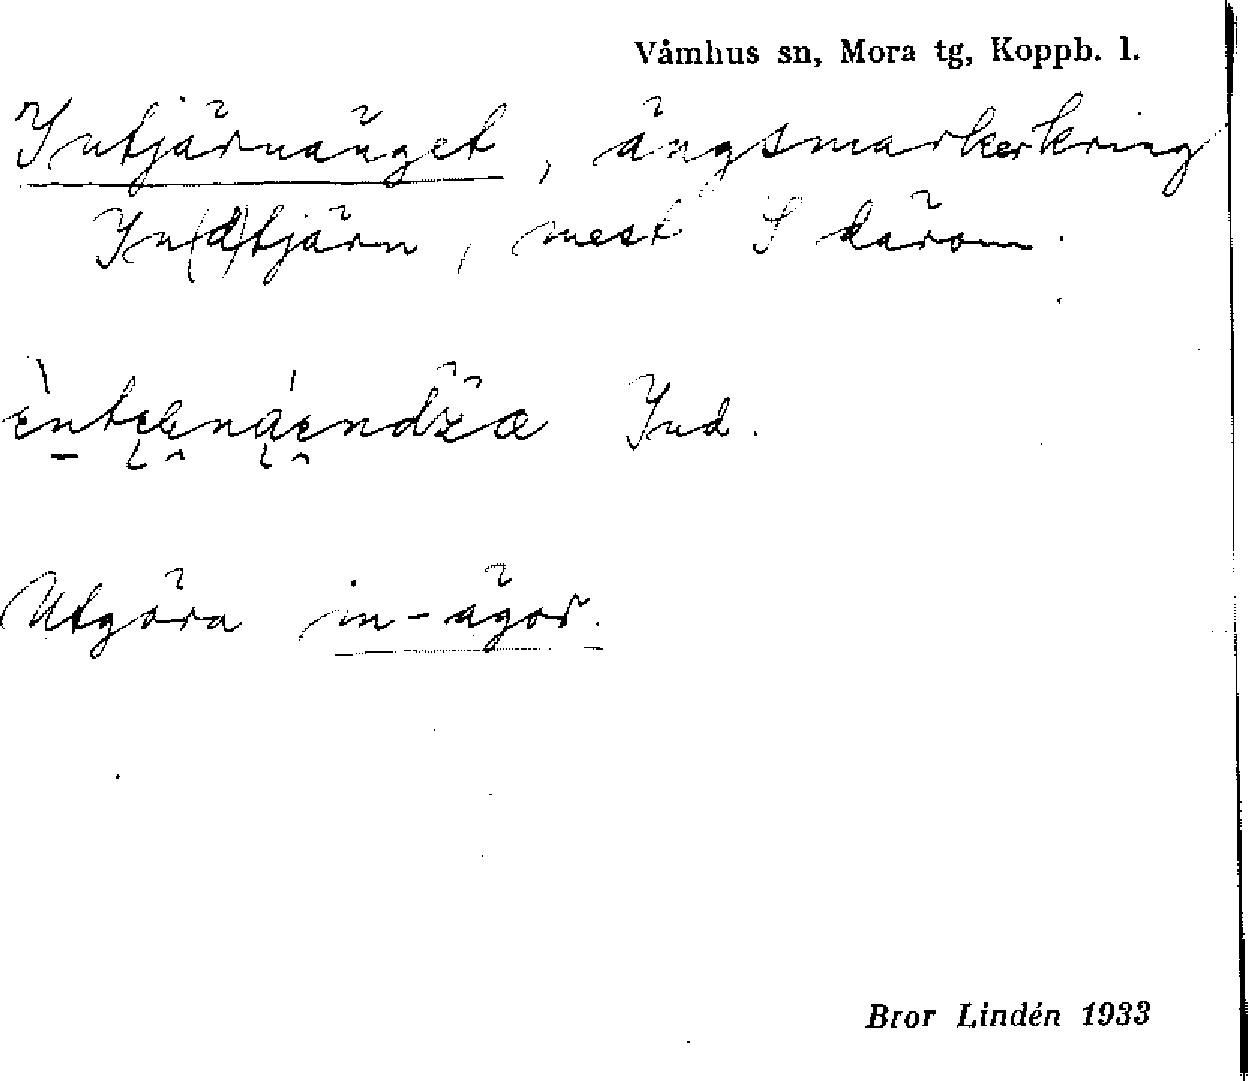 Våmhus sn, Mora tg, Koppb. l.
Intjärnänget, ängsmarker kring
In(d)tjärn, mest S därom.
Ind.
Utgöra in-ägor.
Bror Lindén 1933